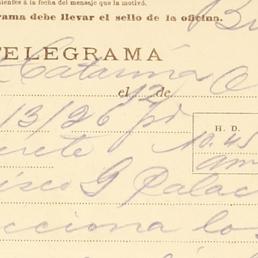 entes á la fecha del mensaje que la motivó.
rama debe llevar el sello de la oficina.
TELEGRAMA
Catarina O
el 12 de
13/26 pd
H. D.
10.45
am
isco G Palac
cciona lo